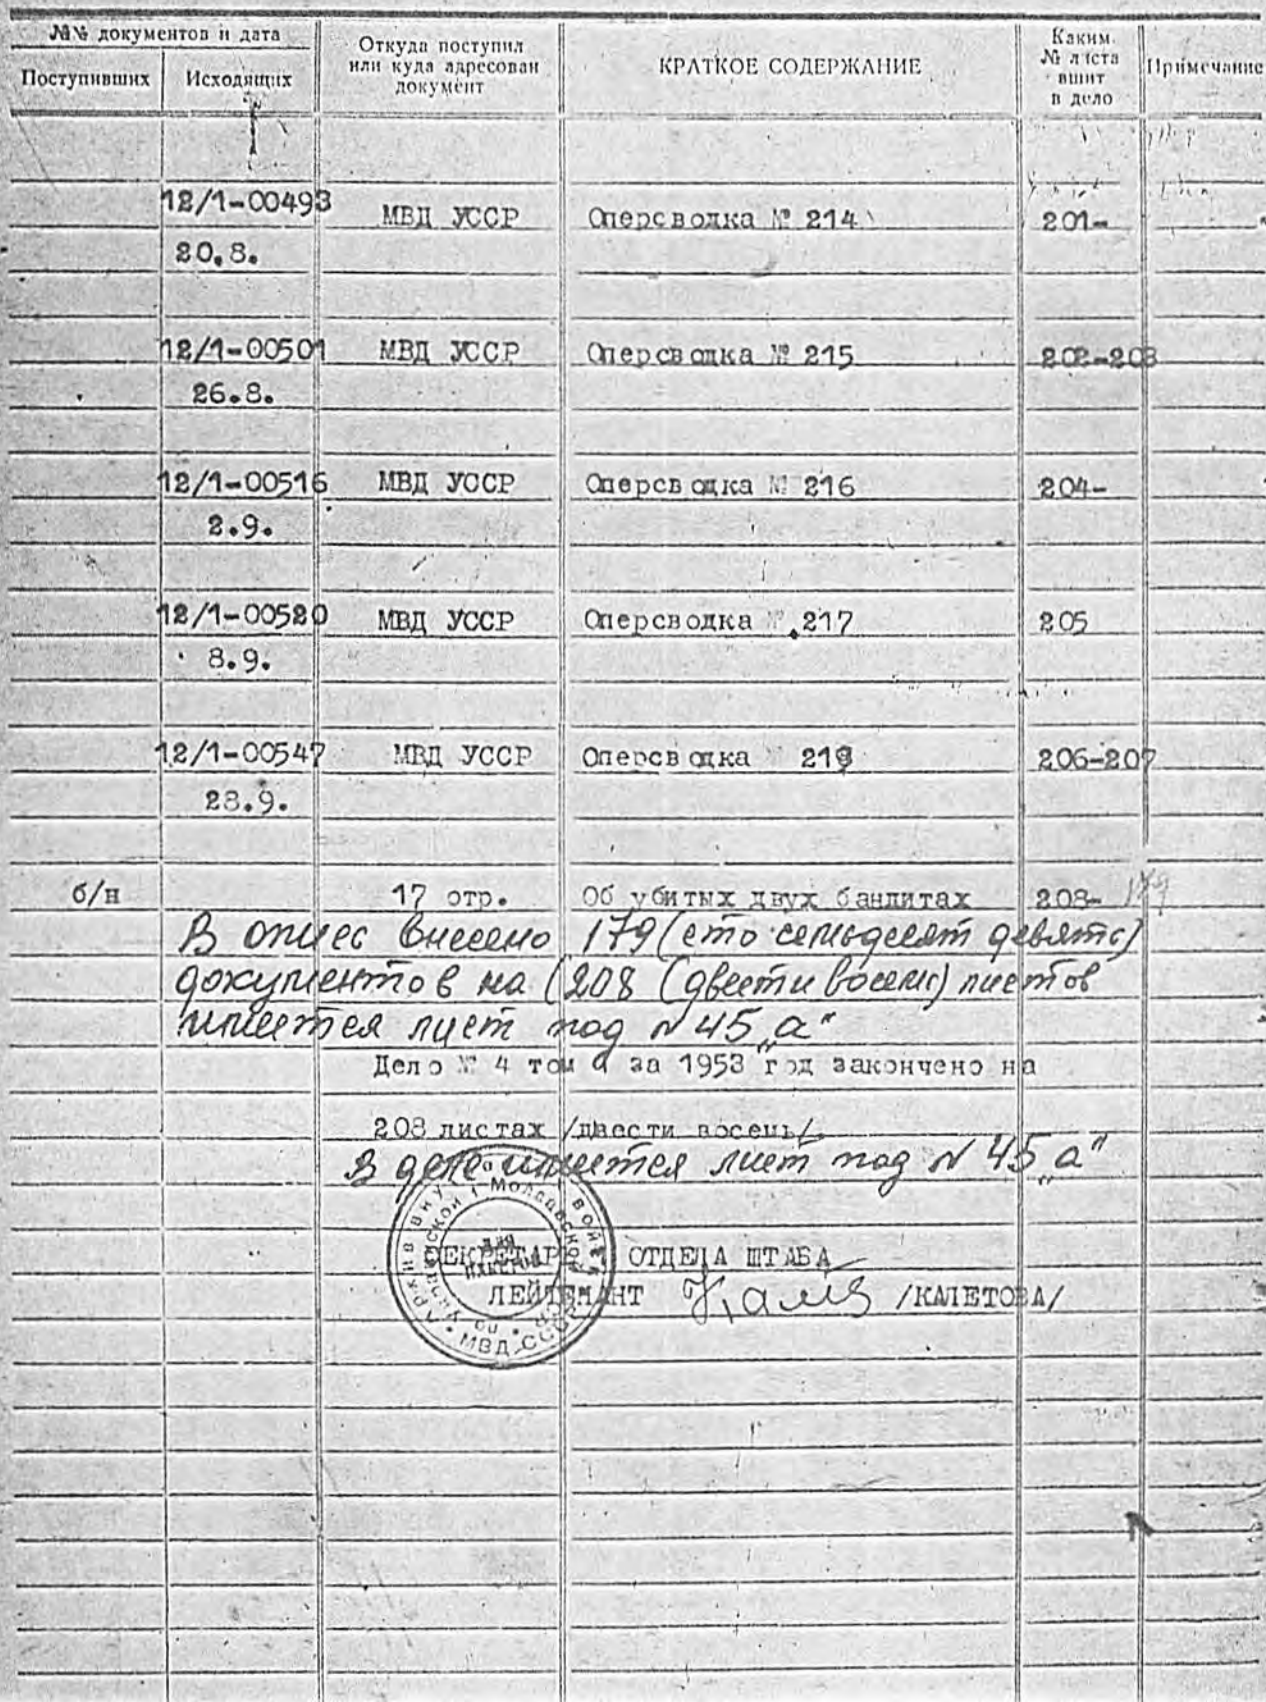 №№ документов и дата
Поступивших
Исходящих
Откуда поступил
или куда адресован
документ
КРАТКОЕ СОДЕРЖАНИЕ
Каким
№ листа
вшит
в дело
Примечание
12/1-00493 МВД УССР Оперсводка № 214 201-
20.8.
12/1-00501 МВД УССР Оперсводка № 215 202-203
26.8.
12/1-00516 МВД УССР Оперсводка № 216 204-
2.9.
12/1-00520 МВД УССР Оперсводка № 217 205
8.9.
12/1-00547 МВД УССР Оперсводка № 219 206-207
23.9.
б/н 17 отр. Об убитых двух бандитах 208- 179
В опис внесено 179 (сто семьдесят девять)
документов на (208 (двести восемь) листов
имеется лист под № 45 „а"
Дело № 4 том за 1953 год закончено на
208 листах /двести восемь/
В деле имеется лист под № 45 „а"
СЕКРЕТАРЬ ОТДЕЛА ШТАБА
ЛЕЙТЕНАНТ /КАЛЕТОВА/
МВД СССР
ДЛЯ
ПАКЕТОВ